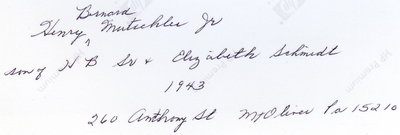 Bernard
Henry ^ Mutschler Jr
son of H B Sr & Elizabeth Schmidt
1943
260 Anthony St Mt Oliver Pa 15210